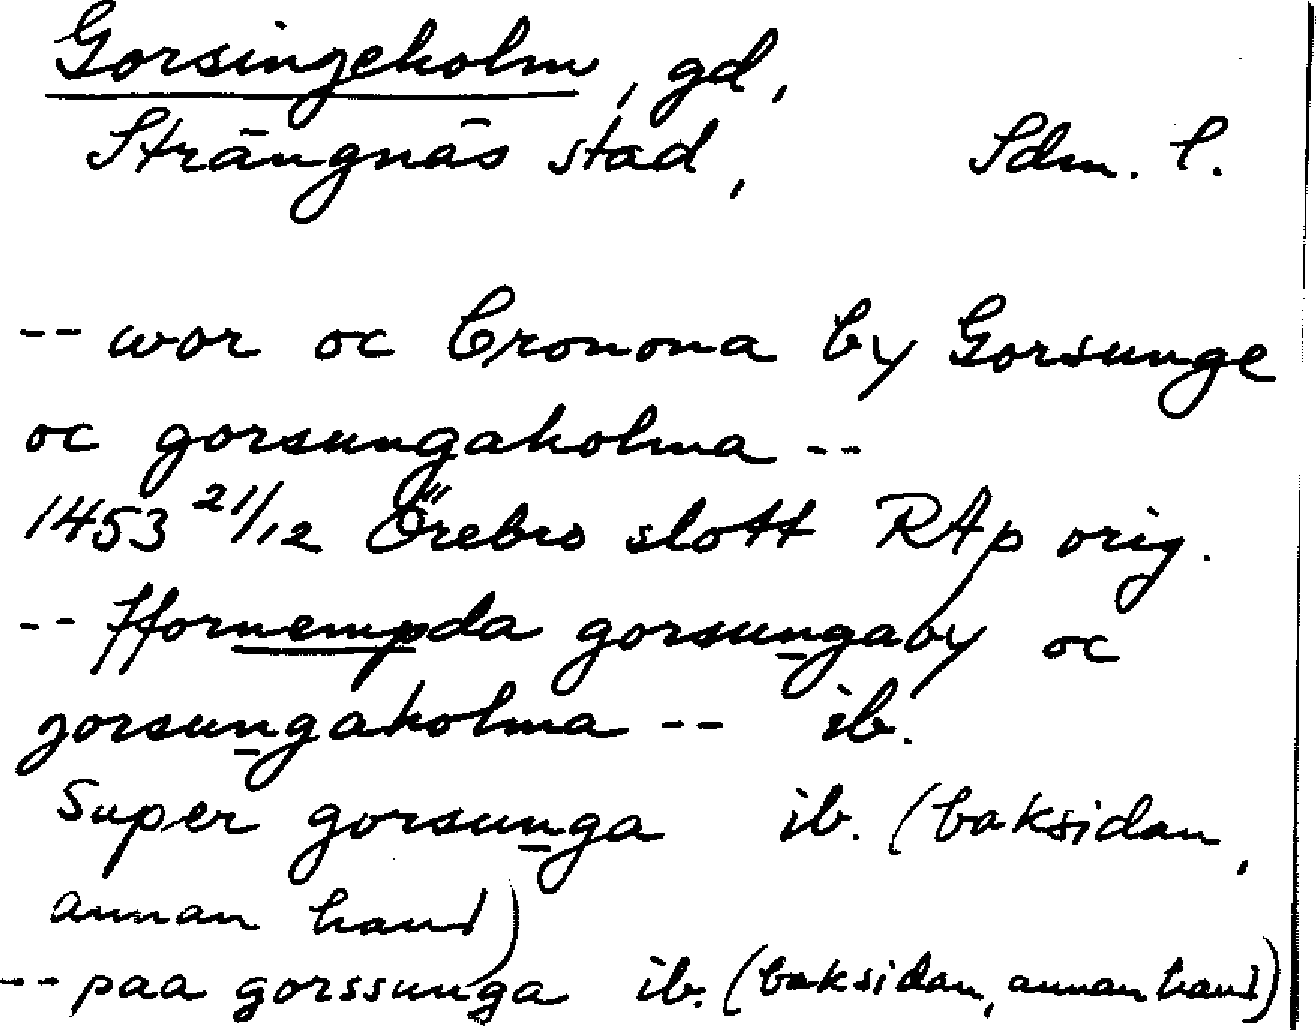 Gorsingeholm, gd,
Strängnäs stad, Sdm. l.
-- wor oc Cronona by Gorsunge
oc gorsungaholma --
1453 21/12 Örebro slott RAp orig.
-- ffornempda gorsungaby oc
gorsungaholma -- ib.
Super gorsunga ib. (baksidan,
annan hand)
-- paa gorssunga ib. (baksidan, annan hand)